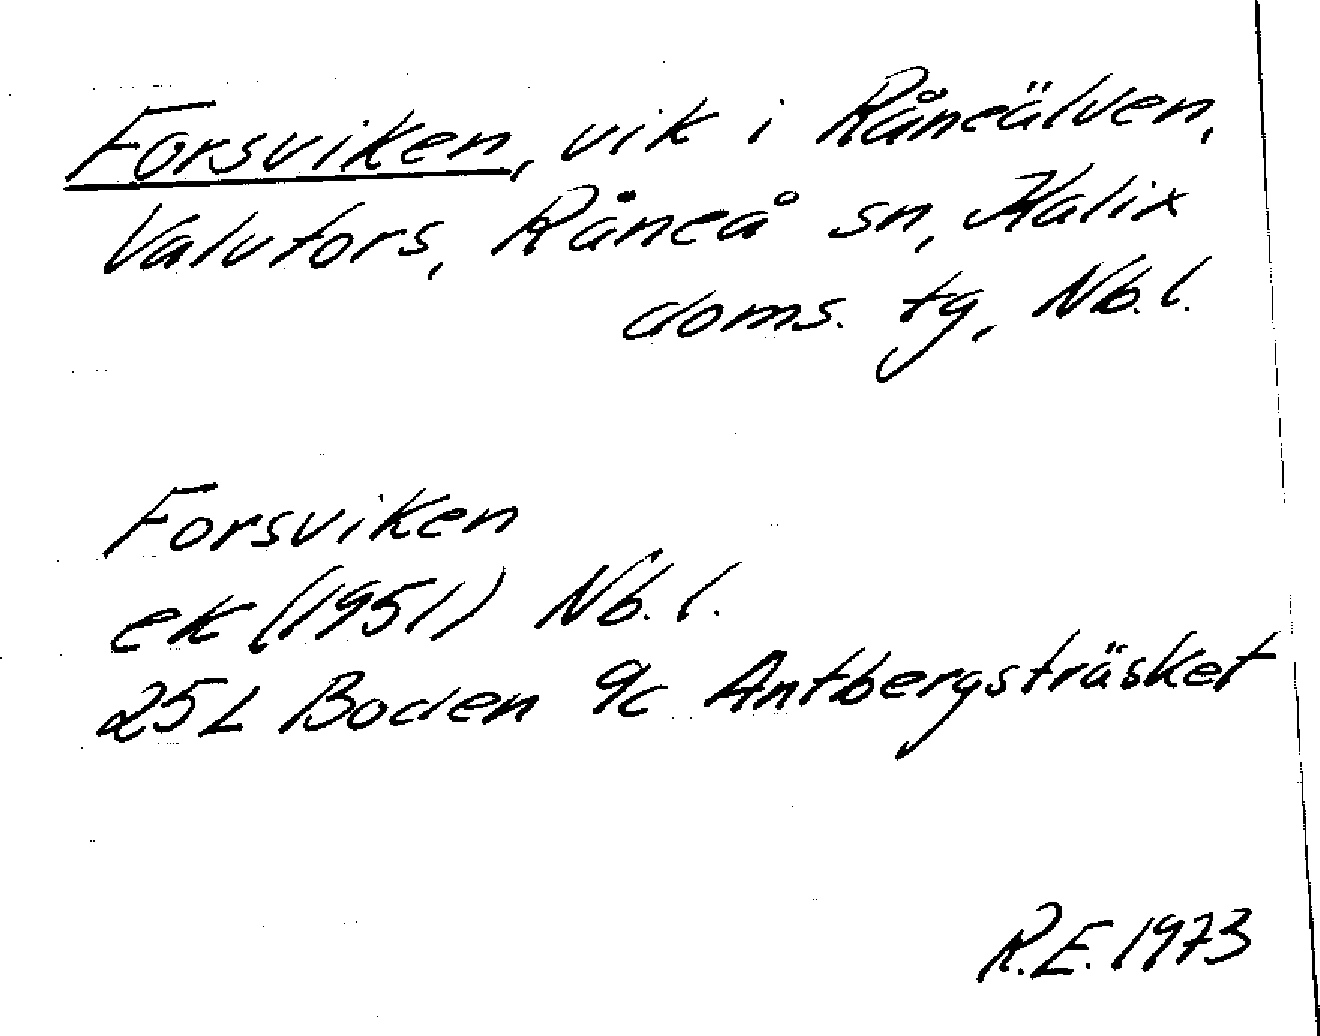 Forsviken, vik i Råneälven,
Valvfors, Råneå sn, Kalix
doms. tg, Nb.l.
Forsviken
ek (1951) Nb.l.
25L Boden 9c Antbergsträsket
R.E. 1973